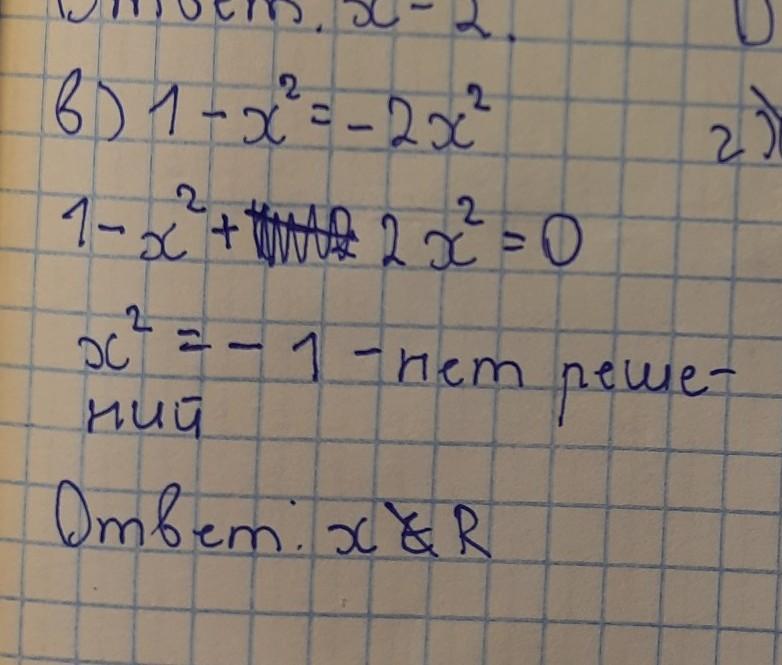 Ответ. x - 2.
в) 1 - x² = - 2x²
г)
1 - x² + 2x² = 0
x² = - 1 - нет реше-
ний
Ответ: x ∉ R